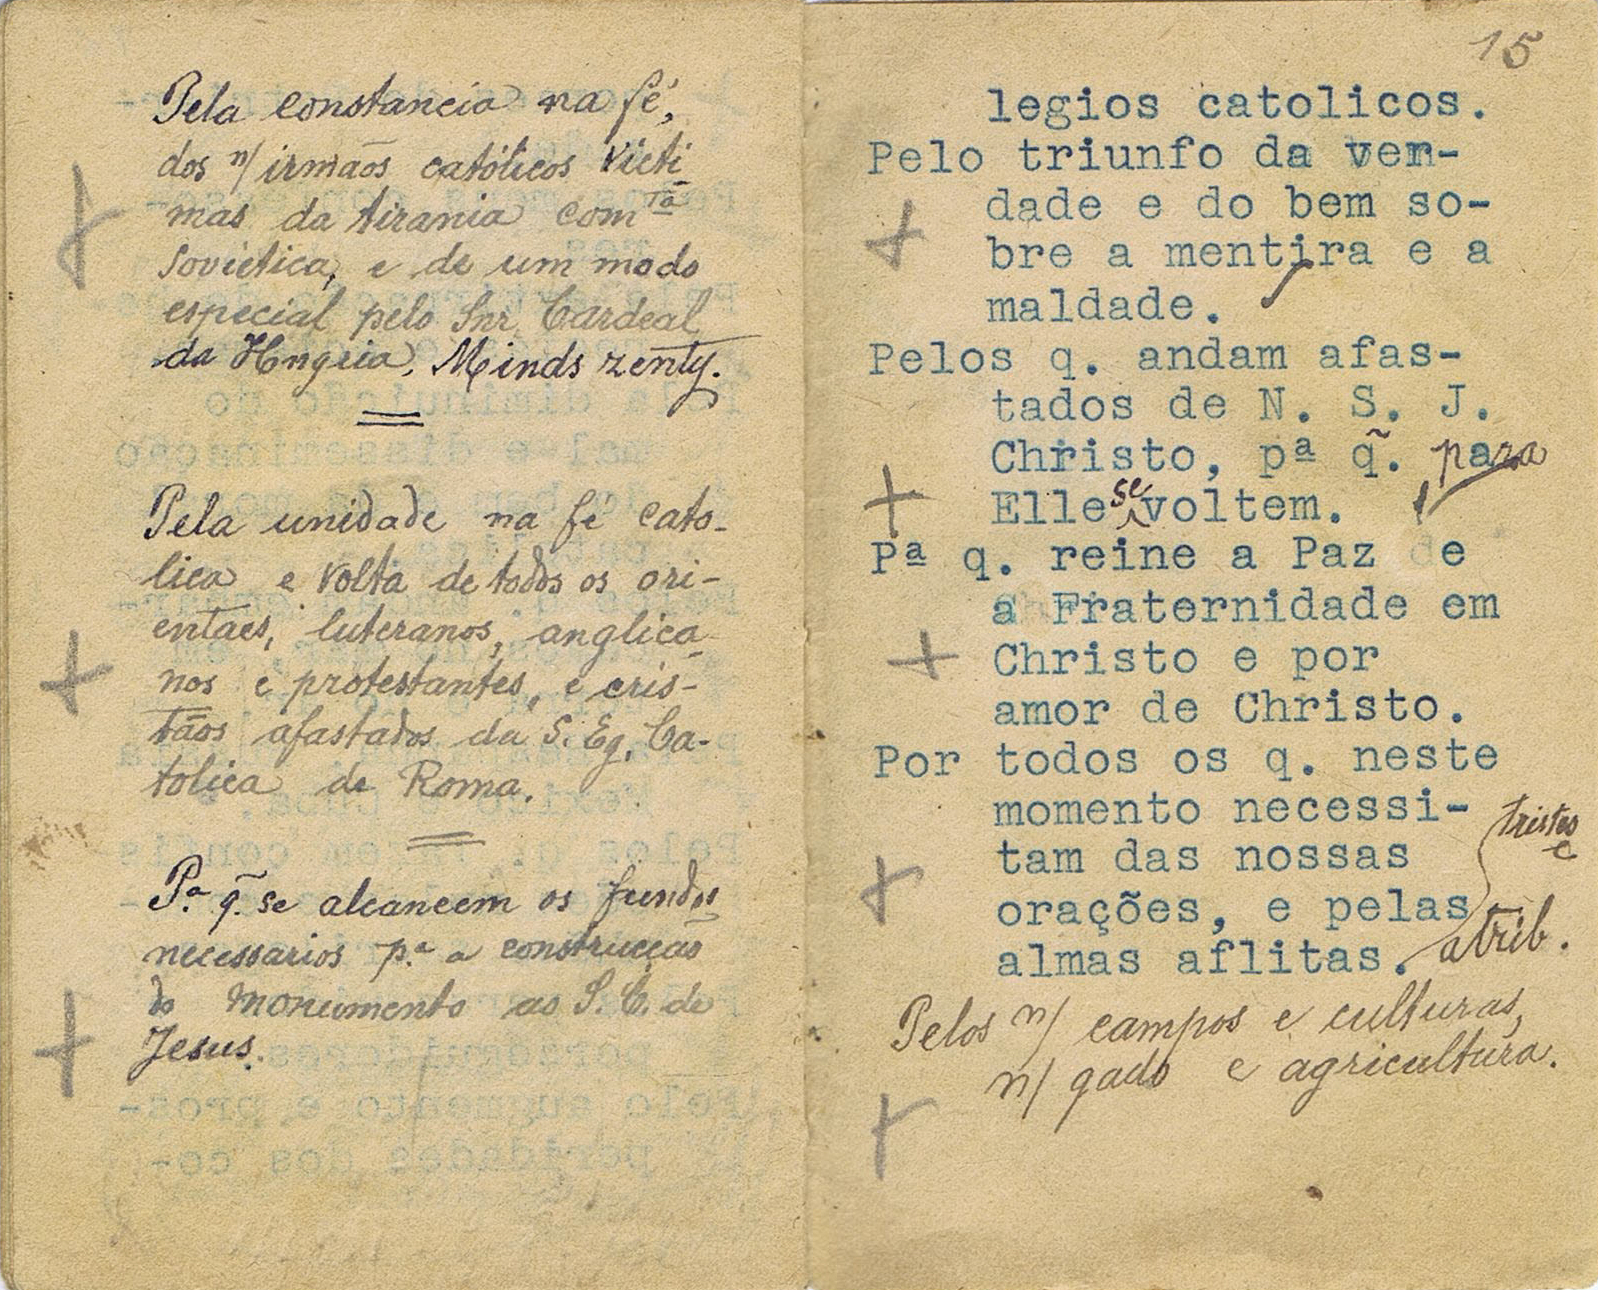 Pela constancia na fé,
dos n/ irmãos católicos víti-
mas da tirania com^ta
Soviética, e de um modo
especial pelo Snr. Cardeal
da Hngria, Mindszenty.
Pela unidade na fé cato-
lica e volta de todos os ori-
entaes, luteranos, anglica-
nos e protestantes, e cris-
tãos afastados da S. Eg. Ca-
tolica de Roma.
P.ª q̃. se alcancem os fundos
necessarios p.ª a construcção
do monumento ao S. C. de
Jesus.
15
legios catolicos.
Pelo triunfo da ver-
dade e do bem so-
bre a mentira e a
maldade.
Pelos q. andam afas-
tados de N. S. J.
Christo, pª q̃. para
Elle se voltem.
Pª q. reine a Paz e
a Fraternidade em
Christo e por
amor de Christo.
Por todos os q. neste
momento necessi-
tam das nossas
orações, e pelas tristes e
almas aflitas. atrib.
Pelos n/ campos e culturas,
n/ gado e agricultura.